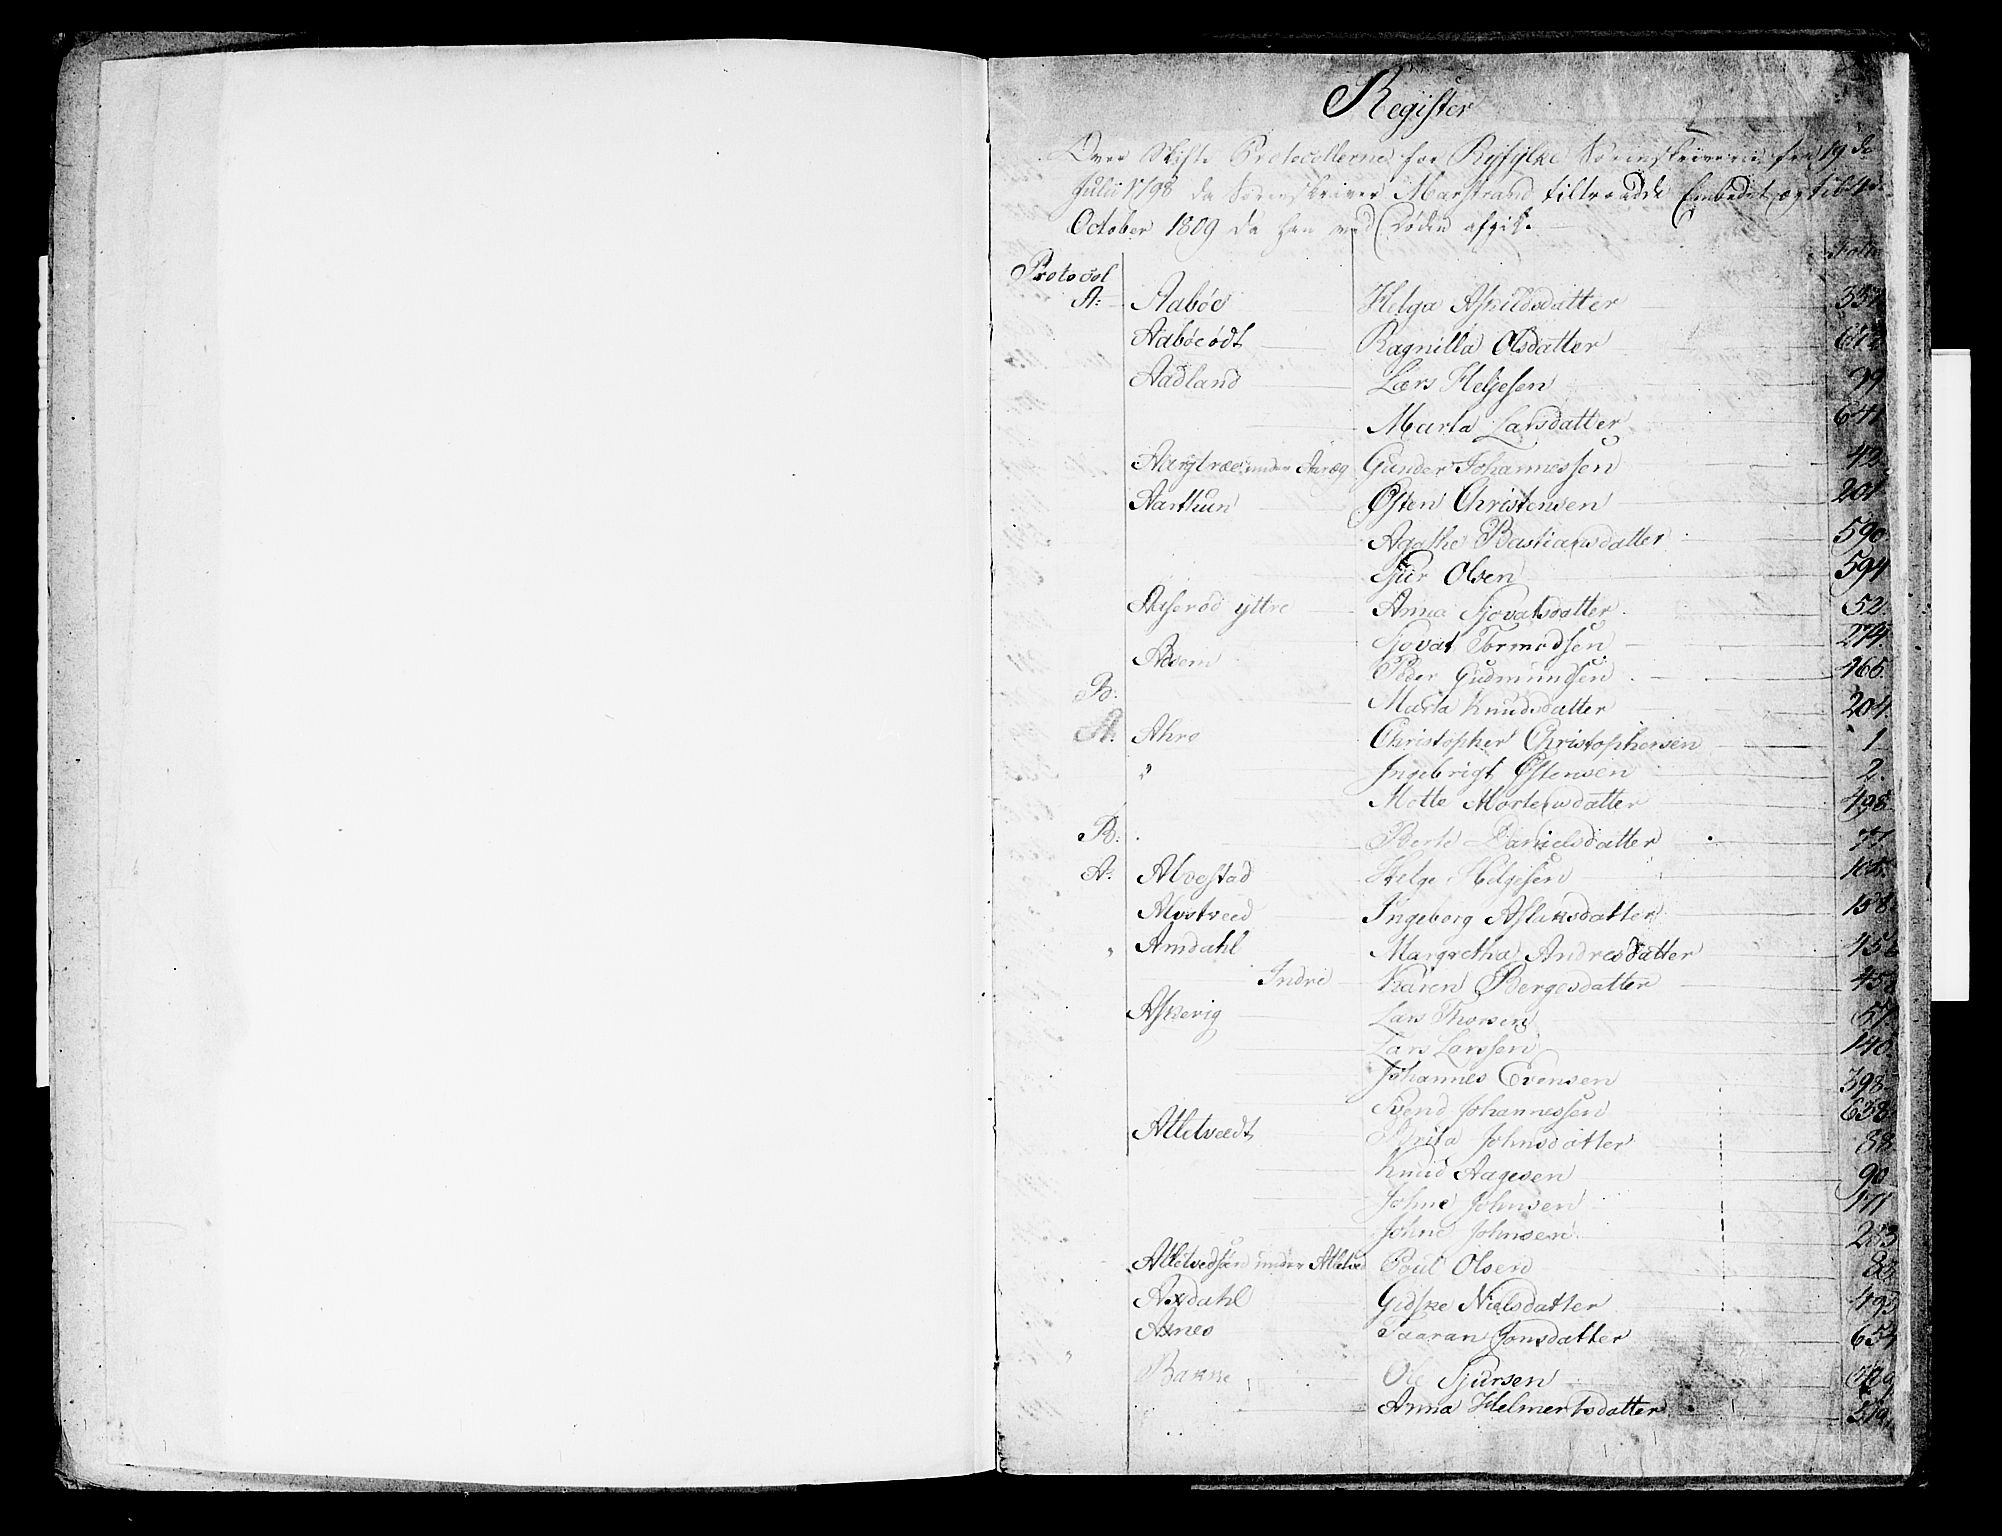 Register
Over Skifte Protocollerne for Ryfylke Sorenskriverie fra 19 de
Julii 1798 da Sorenskriver Marstrand tiltraadde Embedet og til
October 1809 da han ved Døden afgik.
Protocol Folio
A: Aabøe Helga Askildsdatter
Aabøeødt Ragnilla Olsdatter
Aadland Lars Helgesen 99
Marta Larsdatter 641
under Gunder Johannessen 42
Aarthun Østen Christensen 201
Agathe Bastiansdatter 590
Siur Olsen 594
Aaserød yttre Anna Sjovatsdatter 52
Sjovat Tormodsen 274
Peder Gudmundsen 465
B: Marta Knudsdatter 204
A. Ahro Christopher Christophersen 1
" Ingebrigt Østensen 2
Motte Mortensdatter 498
B: Berte Danielsdatter 77
A: Alvestad Helge Helgesen 105
Alvstveed Ingeborg Aslaksdatter 158
" Amdahl Margretha Andresdatter
Indre Karen Bergesdatter
Askevig Lars Thorsen 57
Lars Larssen 140
Johannes Evensen 398
Svend Johannessen 638
Atletvedt Brita Johnsdatter 88
Knud Aagesen 90
Johne Johnsen 171
Johne Johnsen
under Atletved Poul Olsen
Axdahl Gidske Nielsdatter 493
Axnes Taaran Jonsdatter
" Bakke Ole Sjursen
Anna Helmertsdatter